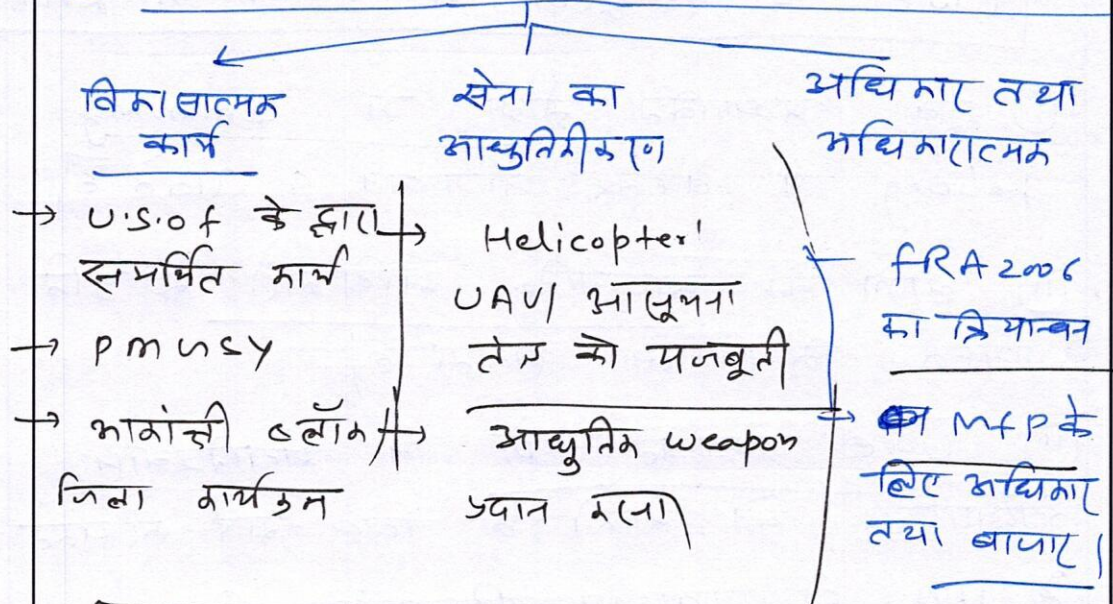 विकासात्मक
कार्य
→ U.S.O.F के द्वारा
समर्थित कार्य
→ PMGSY
→ आकांक्षी ब्लॉक/
जिला कार्यक्रम
सेना का
आधुनिकीकरण
→ Helicopter
UAV/ आसूचना
तंत्र को मजबूती
→ आधुनिक weapon
प्रदान करना
अधिकार तथा
अधिकारात्मक
FRA 2006
का क्रियान्वन
→ MFP के
लिए अधिकार
तथा बाजार।